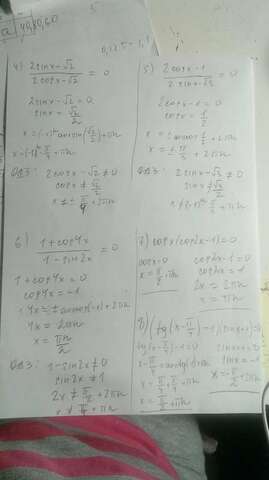 a) 40,80,60
5
4) (2sinx-√2)/(2cosx-√2) = 0
2sinx-√2=0
sinx=√2/2
x=(-1)ⁿ arcsin(√2/2)+πn
x=(-1)ⁿ π/4+πn
ОДЗ: 2cosx-√2≠0
cosx≠√2/2
x≠±π/4+2πn
5) (2cosx-1)/(2sinx-√2)=0
2cosx-1=0
cosx=1/2
x=±arccos 1/2+2πn
x=±π/3+2πn
ОДЗ: 2sinx-√2≠0
sinx≠√2/2
x≠(-1)ⁿ π/4+πn
6) (1+cos4x)/(1-sin2x)=0
1+cos4x=0
cos4x=-1
4x=±arccos(-1)+2πn
4x=2πn
x=πn/2
ОДЗ: 1-sin2x≠0
sin2x≠1
2x≠π/2+2πn
x≠π/4+πn
7) cosx(cos2x-1)=0
cosx=0
x=π/2+πn
cos2x-1=0
cos2x=1
2x=2πn
x=πn
8) (tg(x-π/4)-1)(sinx+1)=0
tg(x-π/4)-1=0
x=π/2+πn
sinx+1=0
sinx=-1
x=-π/2+2πn